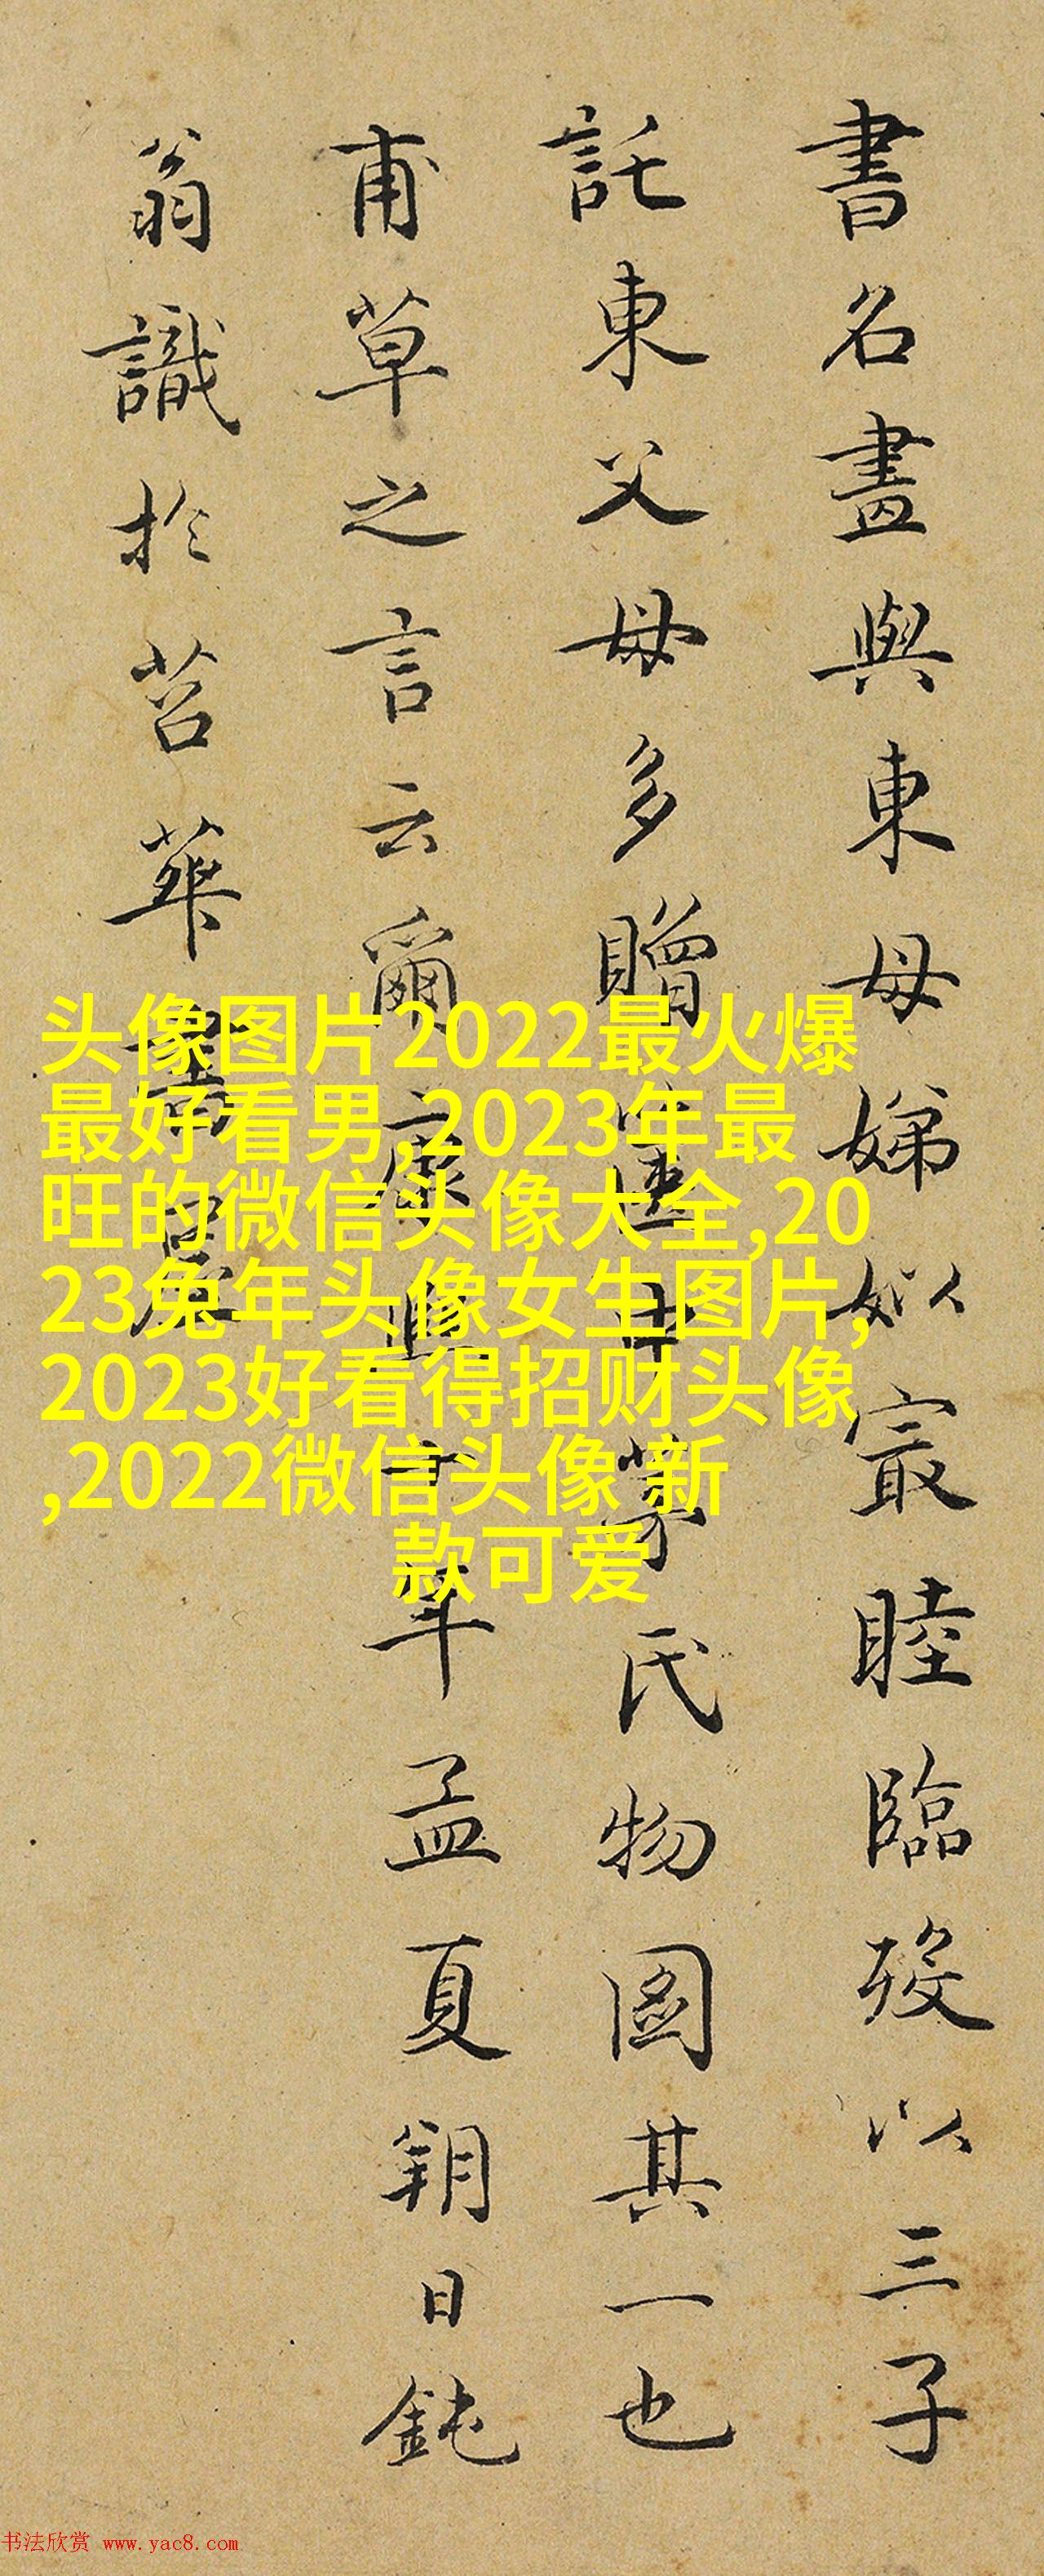 書名畫與東母娣姒寂睦臨歿以三子
託東父母多贈遺甲第氏物圖其一也
甫草之言云爾康熙十年孟夏朔日鈍
翁識於苕華書屋
头像图片2022最火爆
最好看男,2023年最
旺的微信头像大全,20
23兔年头像女生图片,
2023好看得招财头像
,2022微信头像 新
款可爱
书法欣赏 www.yac8.com